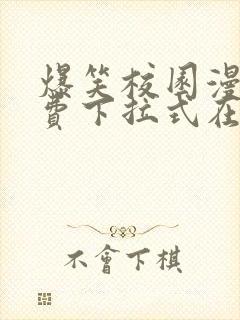 爆笑校园漫
費下拉式在
不會下棋